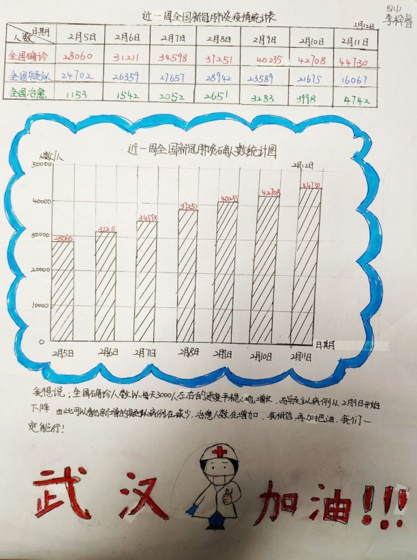 近一周全国新冠肺炎疫情统计表
2月12日
人数 日期 2月5日 2月6日 2月7日 2月8日 2月9日 2月10日 2月11日
全国确诊 28060 31211 34598 37251 40235 42708 44730
全国疑似 24702 26359 27657 28942 23589 21675 16067
全国治愈 1153 1542 2052 2651 3283 3998 4742
近一周全国新冠肺炎确诊人数统计图
人数/人
2月12日
50000
40000
30000
20000
10000
0
28060 31211 34598 37251 40235 42708 44730
日期
2月5日 2月6日 2月7日 2月8日 2月9日 2月10日 2月11日
我想说,全国确诊人数以每天3000人左右的速度平稳地增长,而疑似病例从2月9日开始
下降 由此可以看出新增的疑似病例在减少,治愈人数在增加,我相信,再加把油,我们一
定能行!
武汉加油!!!